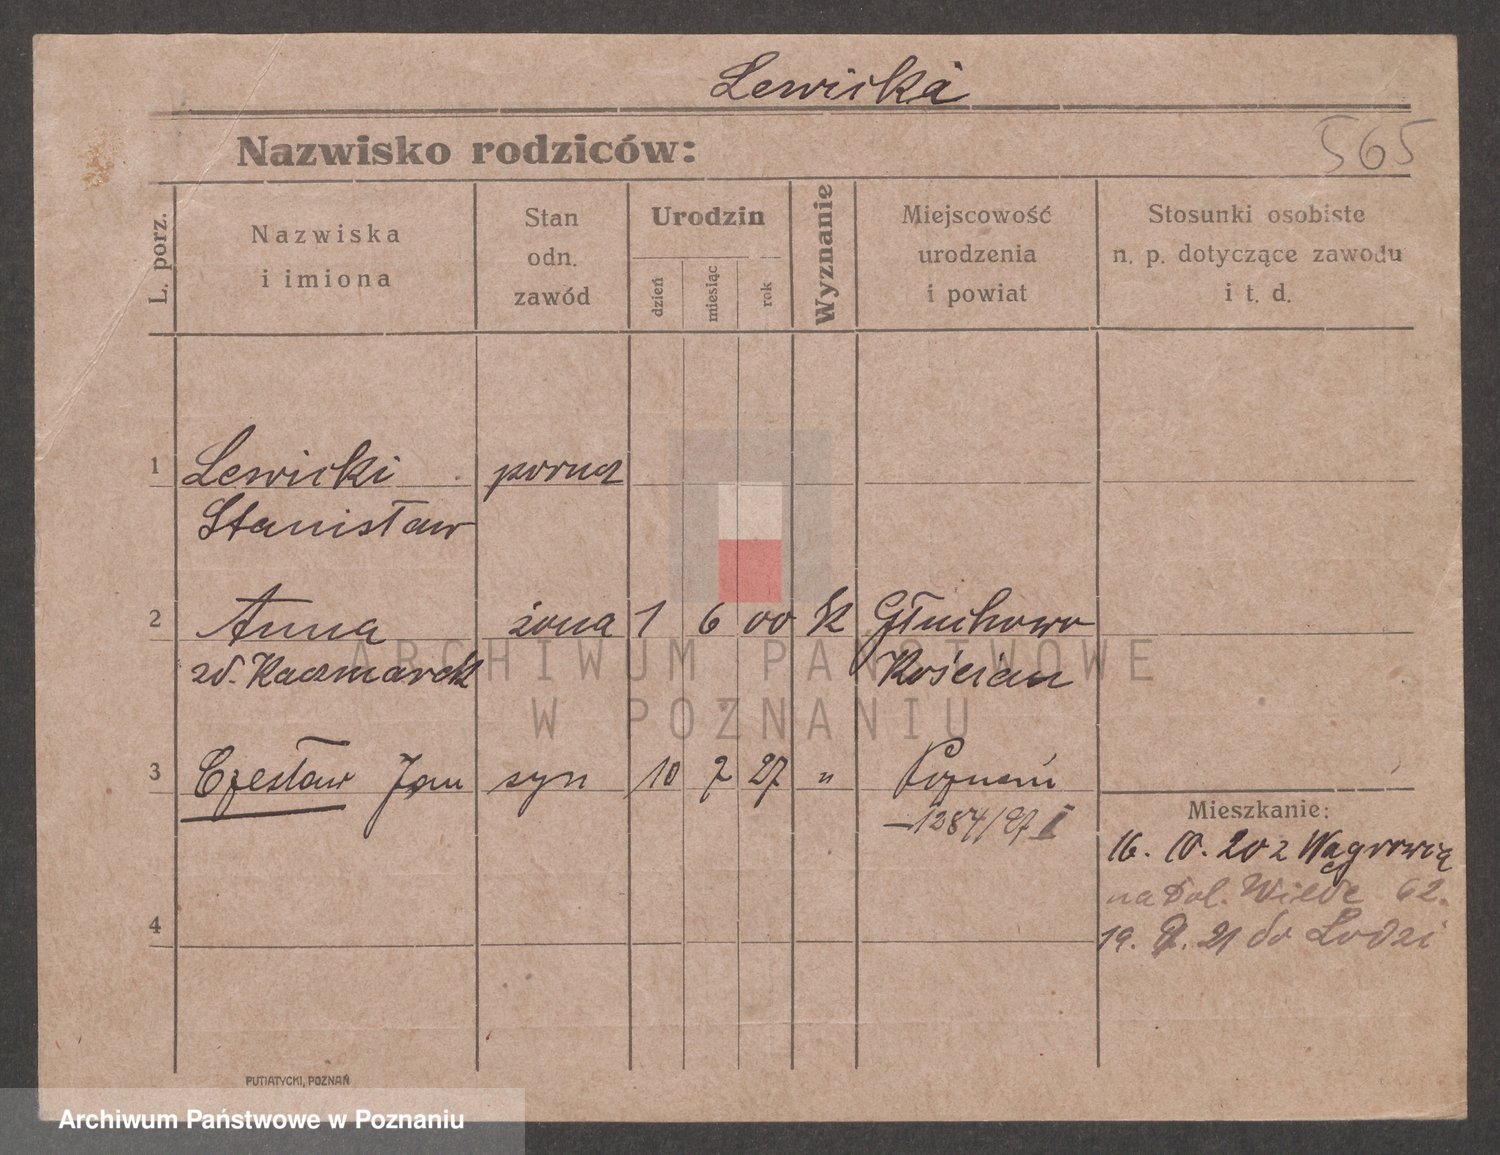 Lewicka
Nazwisko rodziców:
565
L. porz.
Nazwiska
i imiona
Stan
odn.
zawód
Urodzin
dzień
miesiąc
rok
Wyznanie
Miejscowość
urodzenia
i powiat
Stosunki osobiste
n. p. dotyczące zawodu
i t. d.
1 Lewicki porucz
Stanisław
2 Anna żona 1 6 00 k Głuchowo
zd. Kaczmarek Kościan
ARCHIWUM PAŃSTWOWE
W POZNANIU
3 Czesław Jan syn 10 7 27 " Poznań
1284/27 I
Mieszkanie:
16. 10. 20 z Wągrowca
na Dol. Wilde 62.
4
19. 21 do Łodzi
PUTIATYCKI, POZNAŃ
Archiwum Państwowe w Poznaniu